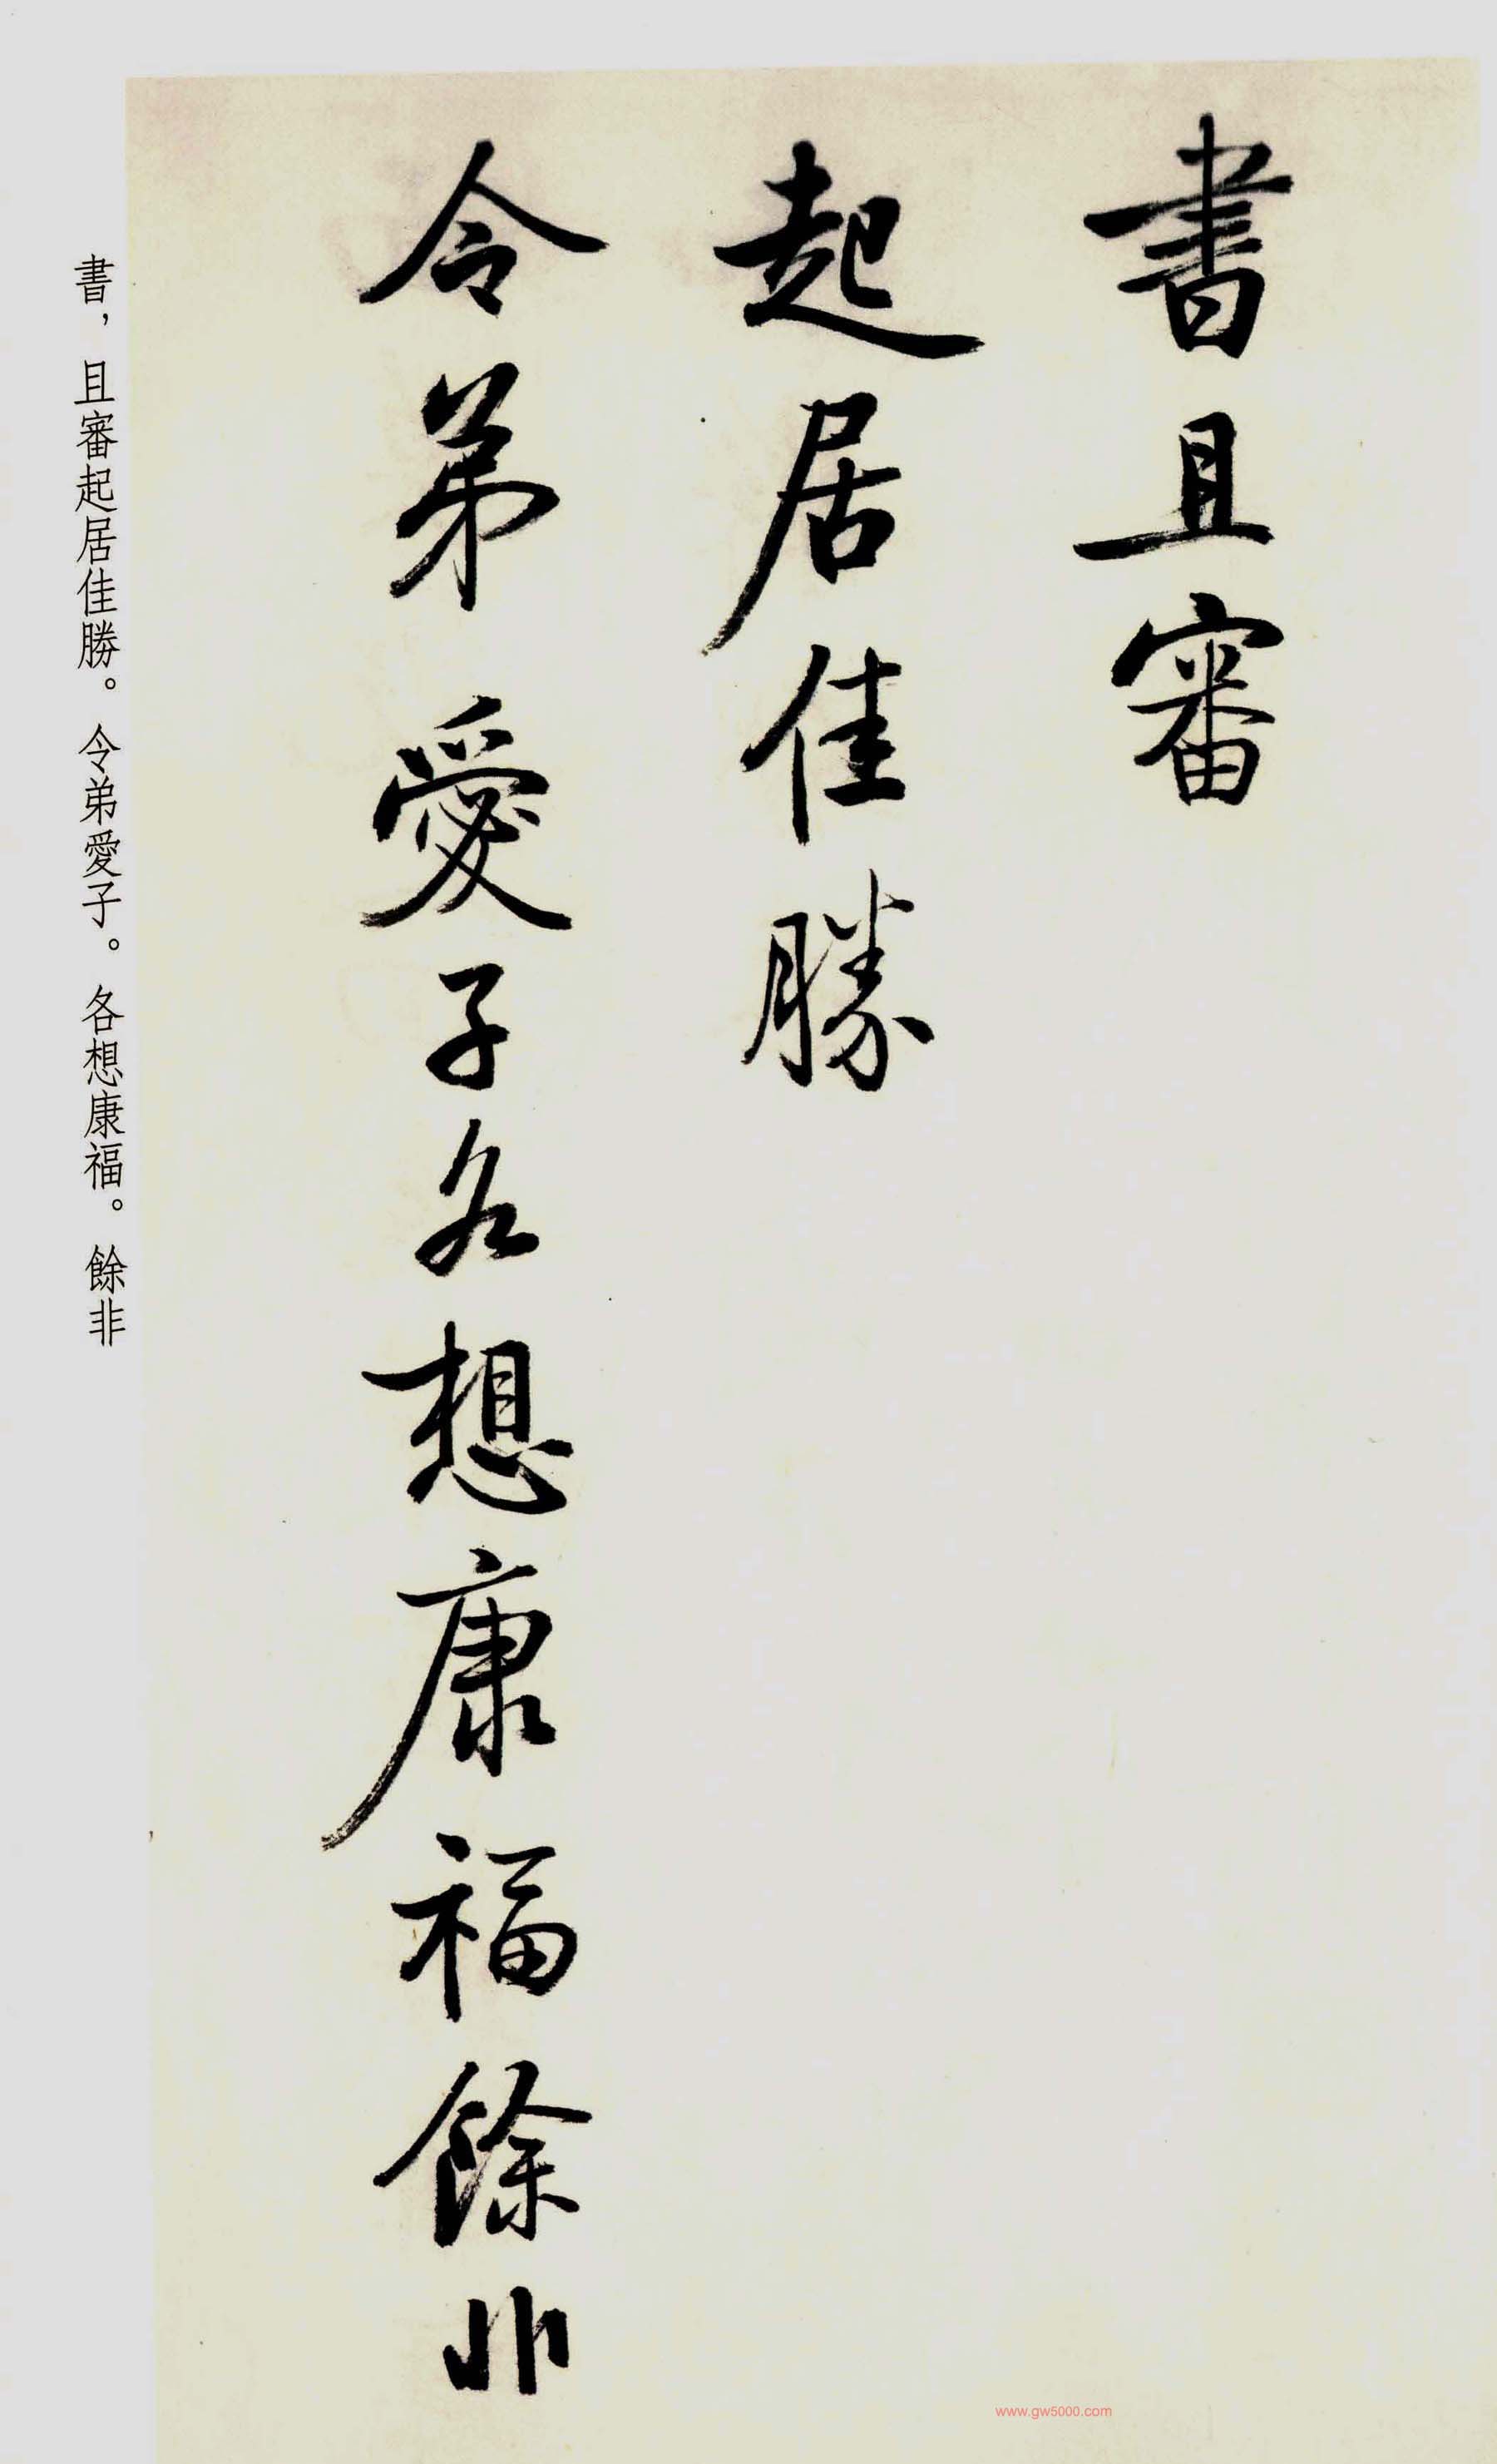 書且審
起居佳勝
令弟愛子各想康福餘非
書，且審起居佳勝。令弟愛子。各想康福。餘非
www.gw5000.com